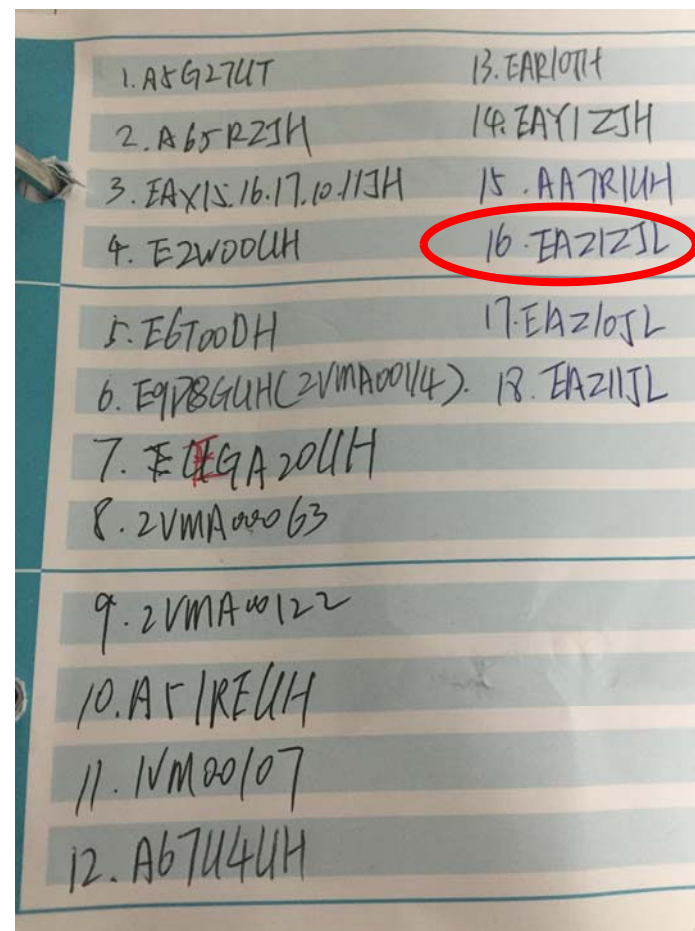 1. A5G27UT
2. A65RZJH
3. EAX15.16.17.10.11JH
4. E2W00UH
5. E6T00DH
6. E9P8GUH(2VMA00114).
8. 2VMA00063
9. 2VMA00122
10. A51REUH
11. 1VM00107
12. A67U4UH
13. EAR10TH
14. EAY1ZJH
15. AA7R1UH
16. EAZ1ZJL
17. EAZ10JL
18. EAZ11JL